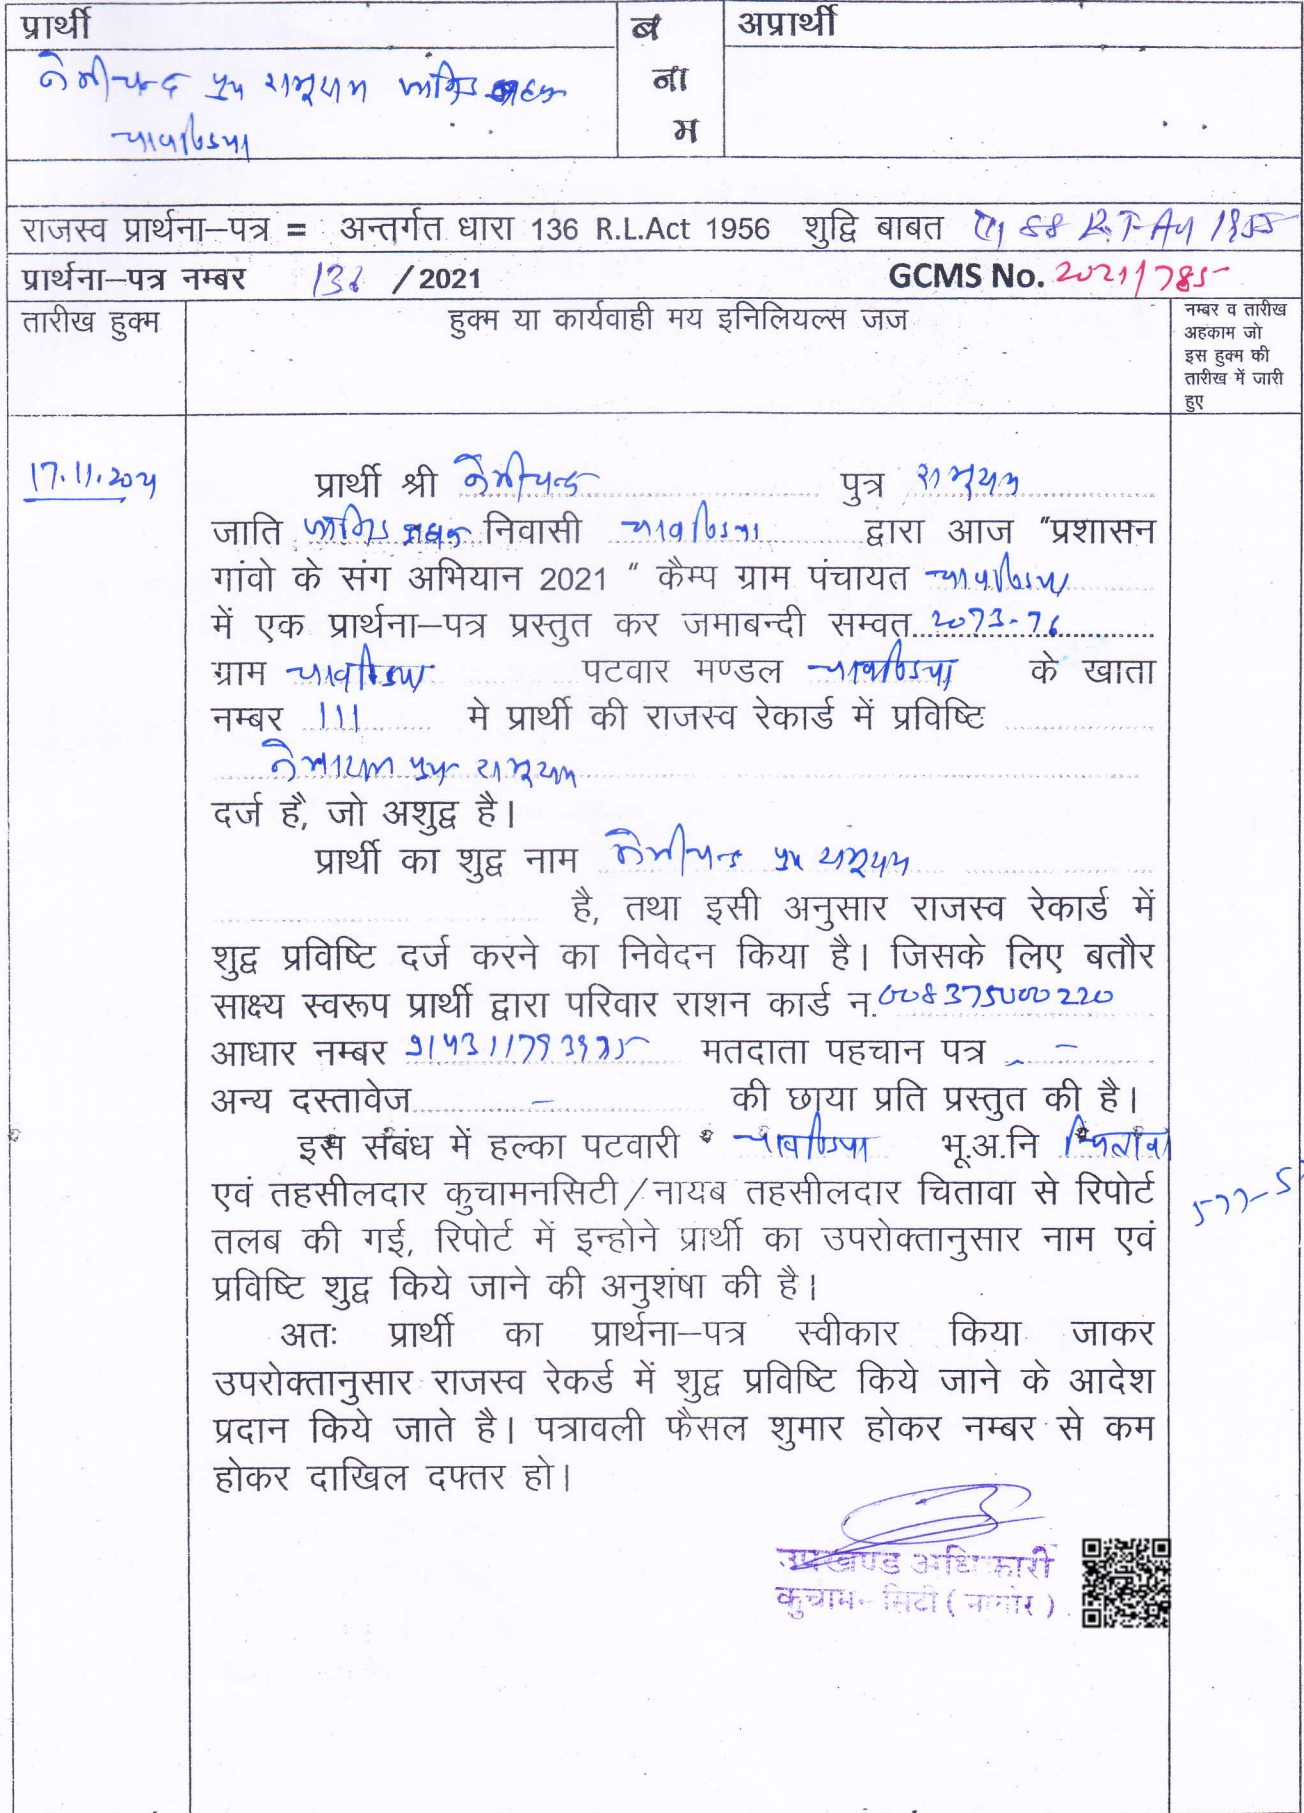 प्रार्थी
ब
ना
म
अप्रार्थी
नेमीचन्द पुत्र रामूराम जाति
चावण्डिया
राजस्व प्रार्थना–पत्र = अन्तर्गत धारा 136 R.L.Act 1956 शुद्वि बाबत 88 R.T. Act 1955
प्रार्थना–पत्र नम्बर 136 / 2021 GCMS No. 2021/785
तारीख हुक्म
हुक्म या कार्यवाही मय इनिलियल्स जज
नम्बर व तारीख
अहकाम जो
इस हुक्म की
तारीख में जारी
हुए
17.11.2021
प्रार्थी श्री नेमीचन्द पुत्र रामूराम
जाति निवासी चावण्डिया द्वारा आज "प्रशासन
गांवो के संग अभियान 2021 " कैम्प ग्राम पंचायत चावण्डिया
में एक प्रार्थना–पत्र प्रस्तुत कर जमाबन्दी सम्वत 2073-76
ग्राम चावण्डिया पटवार मण्डल चावण्डिया के खाता
नम्बर 111 मे प्रार्थी की राजस्व रेकार्ड में प्रविष्टि
नेमाराम पुत्र रामूराम
दर्ज है, जो अशुद्व है।
प्रार्थी का शुद्व नाम नेमीचन्द पुत्र रामूराम
है, तथा इसी अनुसार राजस्व रेकार्ड में
शुद्व प्रविष्टि दर्ज करने का निवेदन किया है। जिसके लिए बतौर
साक्ष्य स्वरूप प्रार्थी द्वारा परिवार राशन कार्ड न. 008375000220
आधार नम्बर मतदाता पहचान पत्र –
अन्य दस्तावेज – की छाया प्रति प्रस्तुत की है।
इस संबंध में हल्का पटवारी चावण्डिया भू.अ.नि चितावा
एवं तहसीलदार कुचामनसिटी/नायब तहसीलदार चितावा से रिपोर्ट
तलब की गई, रिपोर्ट में इन्होने प्रार्थी का उपरोक्तानुसार नाम एवं
प्रविष्टि शुद्व किये जाने की अनुशंषा की है।
अतः प्रार्थी का प्रार्थना–पत्र स्वीकार किया जाकर
उपरोक्तानुसार राजस्व रेकर्ड में शुद्व प्रविष्टि किये जाने के आदेश
प्रदान किये जाते है। पत्रावली फैसल शुमार होकर नम्बर से कम
होकर दाखिल दफ्तर हो।
उपखण्ड अधिकारी
कुचामन सिटी ( नागौर )